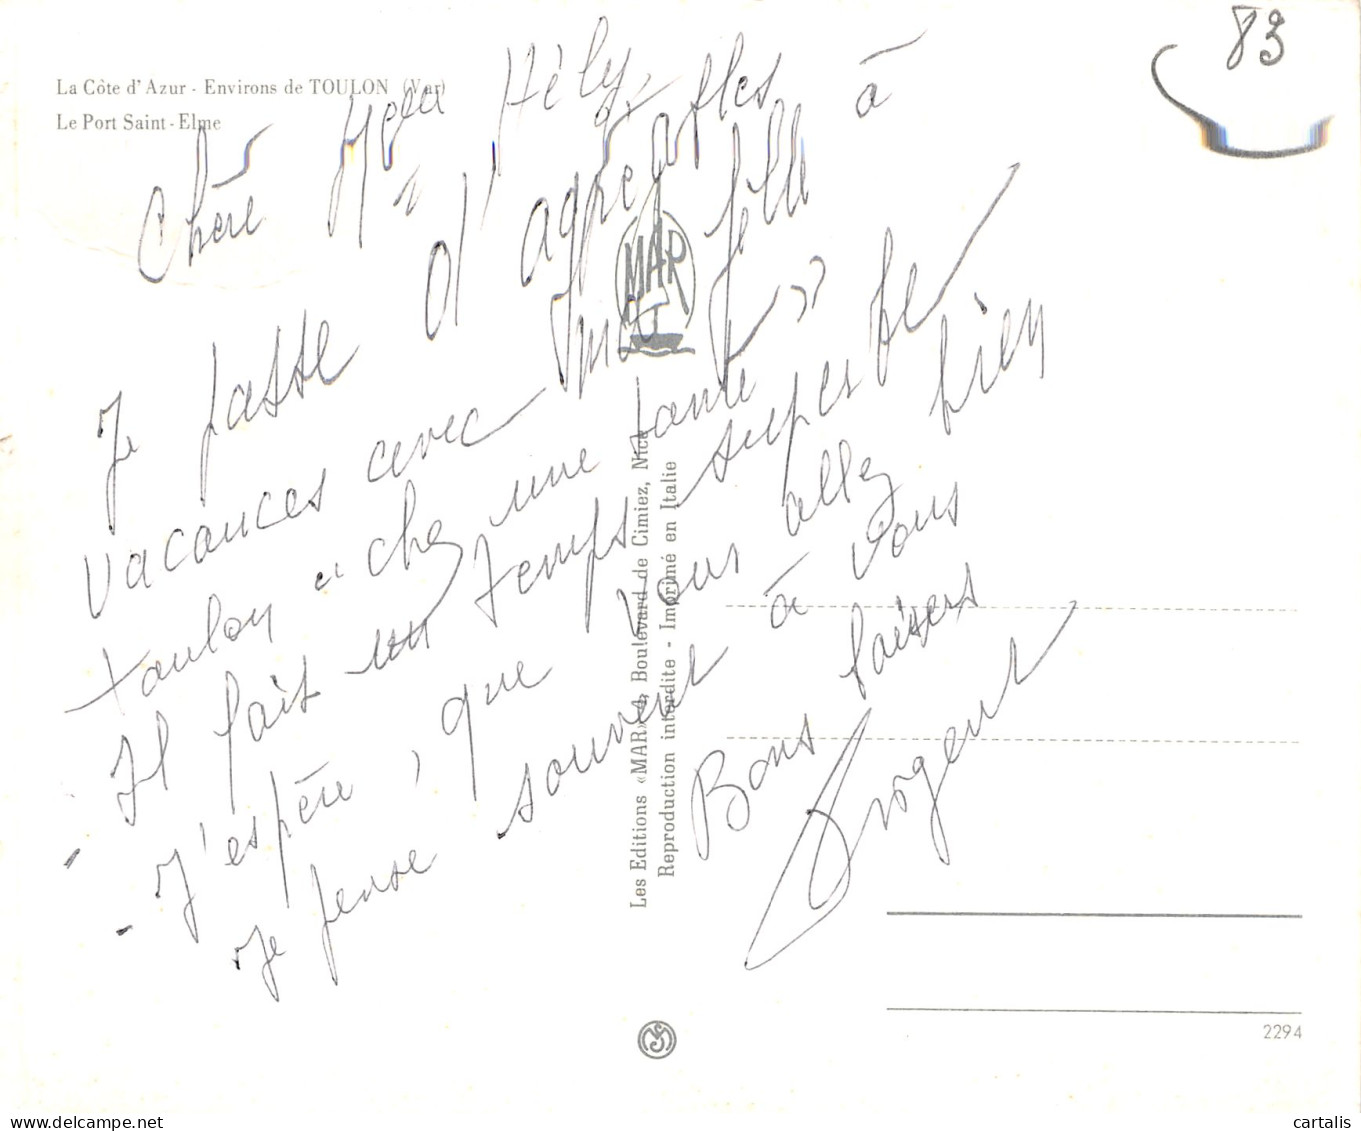 83
La Côte d'Azur - Environs de TOULON (Var)
Le Port Saint-Elme
Chère Hély,
Je passe d'agréables
vacances avec ma fille à
toulon " chez une tante "
Il fait un temps superbe
J'espère, que vous allez bien
Je pense souvent à vous
Bons baisers
MAR
Les Editions «MAR», Boulevard de Cimiez, Nice
Reproduction interdite - Imprimé en Italie
2294
cartalis
www.delcampe.net